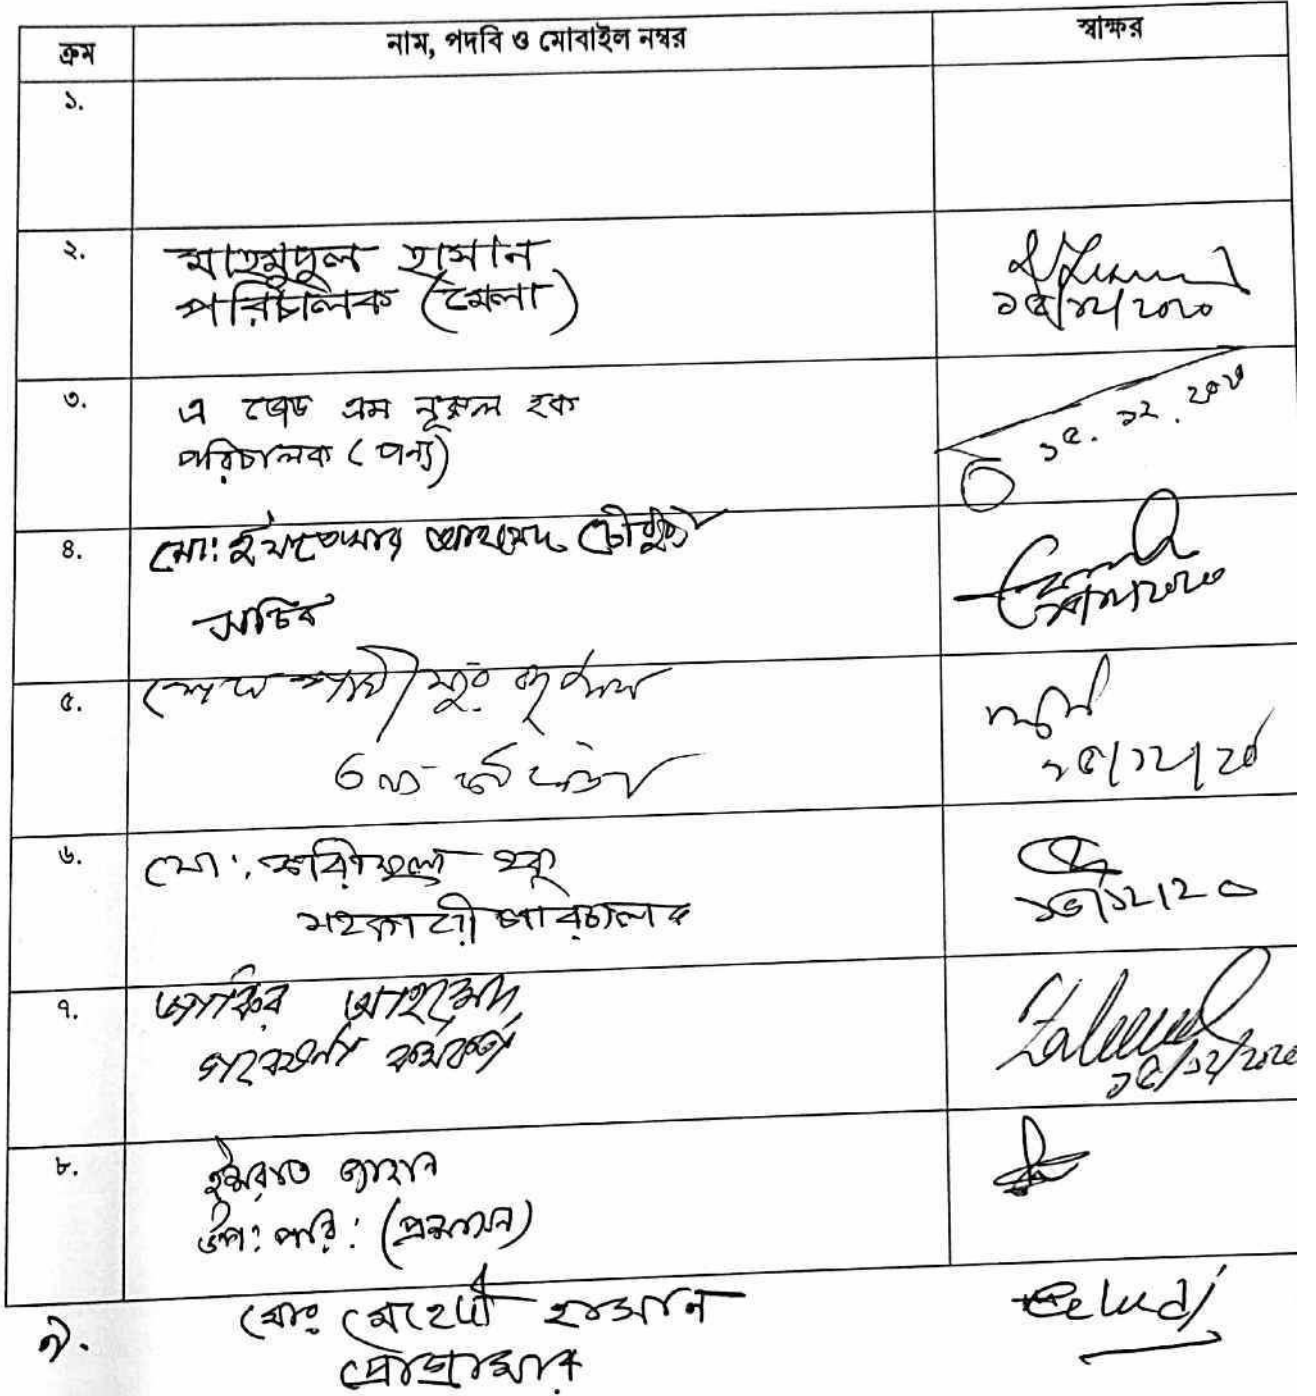 ক্রম নাম, পদবি ও মোবাইল নম্বর স্বাক্ষর
১.
২. মাহমুদুল হাসান
পরিচালক (মেলা)
১৫/১২/২০২০
৩. এ জেড এম নূরুল হক
পরিচালক (পণ্য)
১৫.১২.২০২০
৪. মো: ইফতেখার আহমেদ চৌধুরী
সচিব
৫.
১৫/১২/২০
৬. মো: হক
সহকারী পরিচালক
১৫/১২/২০
৭. জাকির আহমেদ
গবেষণা কর্মকর্তা
১৫/১২/২০২০
৮. ইসরাত জাহান
উপ: পরি: (প্রশাসন)
৯. মোঃ মেহেদী হাসান
প্রোগ্রামার